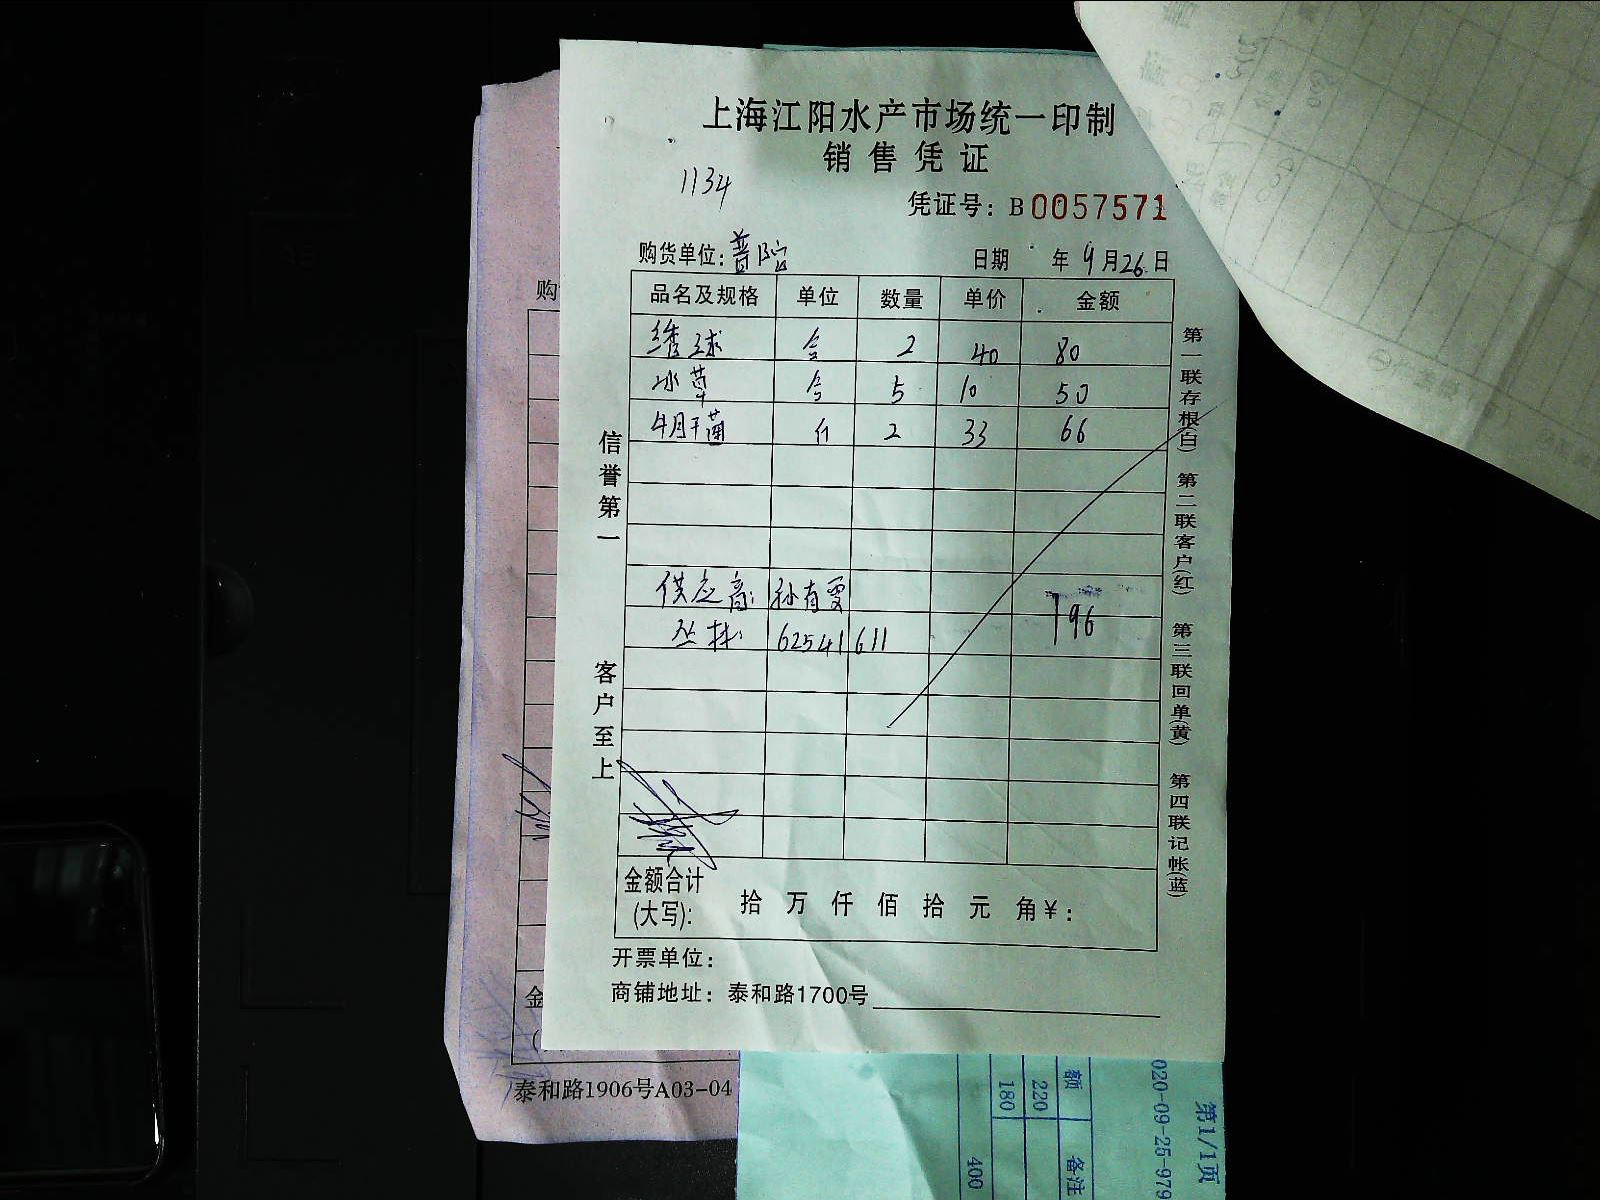 上海江阳水产市场统一印制
销售凭证
1134
凭证号：B0057571
购货单位：普陀
日期 年9月26日
品名及规格 单位 数量 单价 金额
绣球 合 2 40 80
冰草 合 5 10 50
牛肝菌 斤 2 33 66
供应商：孙有雯
丛林：62541611
196
信誉第一
客户至上
第一联存根(白) 第二联客户(红) 第三联回单(黄) 第四联记帐(蓝)
金额合计(大写)： 拾 万 仟 佰 拾 元 角¥：
开票单位：
商铺地址：泰和路1700号
购
金
泰和路1906号A03-04
第1/1页
020-09-25-979
额 备注
220
180
400